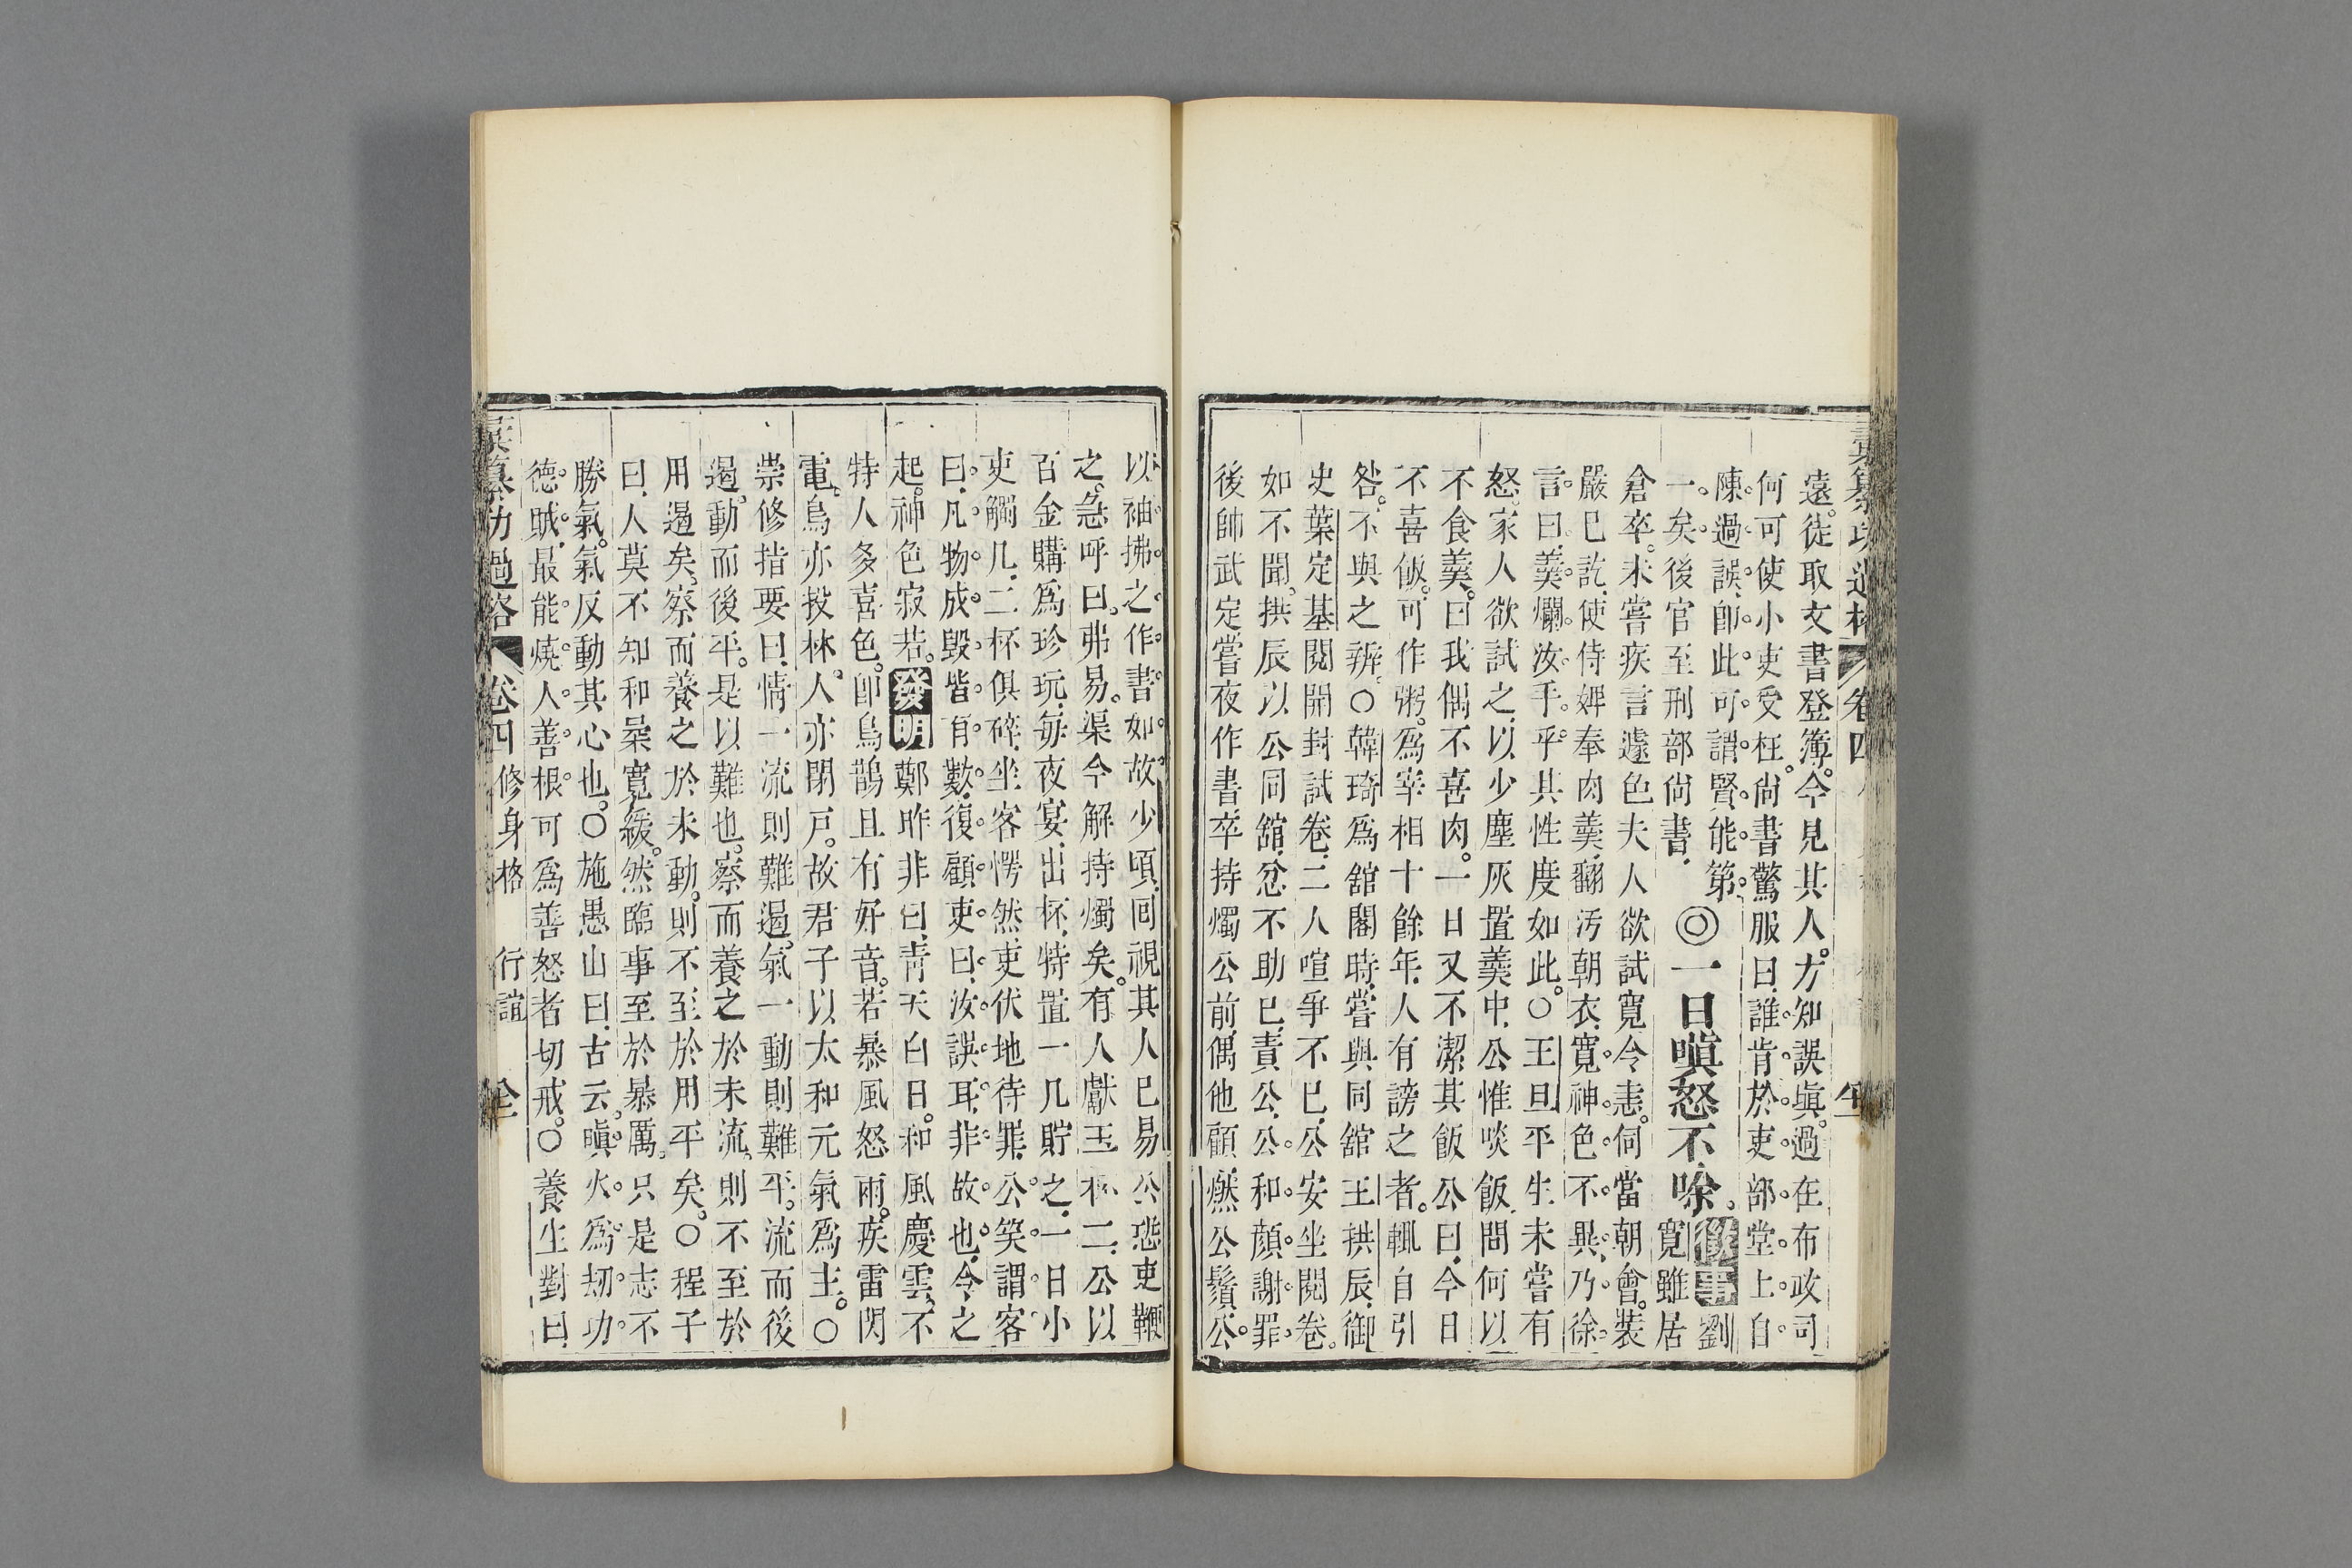 遠。徒取文書登簿。今見其人。方知誤與。過在布政司
何可使小吏受枉。尙書驚服曰、誰肯於吏部堂上自
陳過誤。卽此可謂賢能第
一矣。後官至刑部尙書、
◎一日嗔怒不唫。
徵事 劉
寛雖居
倉卒。未嘗疾言遽色夫人欲試寛令恚。伺當朝會。裝
嚴已訖、使侍婢奉肉羹、翻汚朝衣、寛神色不異、乃徐
言曰、羹爛汝手乎其性度如此。○王旦平生未嘗有
怒。家人欲試之、以少塵灰置羹中、公惟啖飯、問何以
不食羹。曰我偶不喜肉。一日又不潔其飯公曰、今日
不喜飯。可作粥。爲宰相十餘年、人有謗之者。輒自引
咎。不與之辨。○韓琦爲舘閣時、嘗與同舘王拱辰、御
史葉定基閱開封試卷、二人喧爭不已、公安坐閱卷。
如不聞。拱辰以公同舘、忿不助已、責公、公和顔謝罪、
後帥武定嘗夜作書、卒持燭公前、偶他顧、燃公鬚、公。
彙纂功過格 卷四
以袖拂之作書如故少頃、回視其人已易公恐吏鞭
之、急呼曰。弗易。渠今解持燭矣。有人獻玉杯二、公以
百金購爲珍玩、每夜宴、出杯、特置一几貯之、一日小
吏觸几、二杯俱碎、坐客愕然、吏伏地待罪、公笑謂客
曰、凡物成毀皆有數、復顧吏曰、汝誤耳、非故也、今之
起。神色寂若。發明鄭昨非曰、靑天白日。和風慶雲、不
特人多喜色。卽鳥鵲且有好音。若暴風怒雨。疾雷閃
電。鳥亦投林。人亦閉戸。故君子以太和元氣爲主。○
崇修指要曰、情一流則難遏。氣一動則難平。流而後
遏。動而後平。是以難也。察而養之於未流。則不至於
用遏矣。察而養之於未動。則不至於用平矣。○程子
曰、人莫不知和柔寛緩。然臨事至於暴厲。只是志不
勝氣。氣反動其心也。○施愚山曰、古云、嗔火爲刧功
德賊、最能燒人善根可爲善怒者切戒。○養生對曰、
彙纂功過格 卷四 修身格 行誼